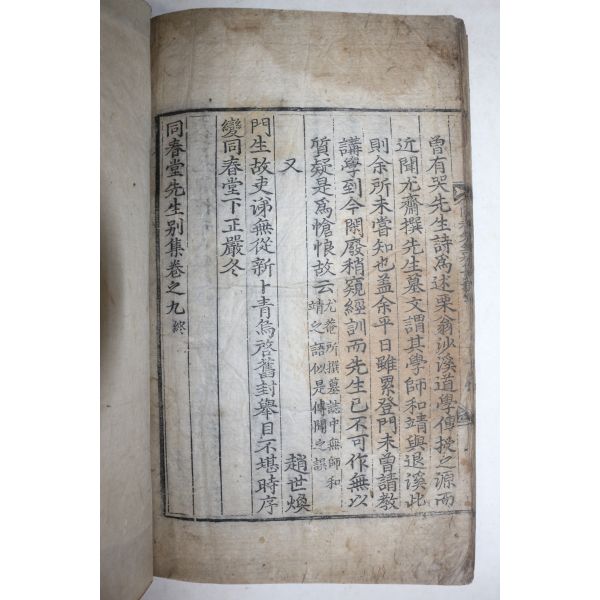 曾有哭先生詩爲述栗翁沙溪道學傳授之源而
近聞尤齋撰先生墓文謂其學師和靖與退溪此
則余所未嘗知也盖余平日雖累登門未曾請教
講學到今閑廢稍窺經訓而先生已不可作無以
質疑是爲愴恨故云尤菴所撰墓誌中無師和
靖之語似是傳聞之誤
又
趙世煥
門生故吏涕無從新卜青烏啓舊封擧目不堪時序
變同春堂下正嚴冬
同春堂先生別集卷之九 終